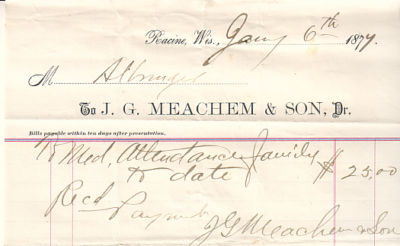 Racine, Wis., Jany 6th 1879.
M
To J. G. MEACHEM & SON, Dr.
Bills payable within ten days after presentation.
To Med. Attendance family
to date $25.00
Recd Payment
J G Meachem & Son